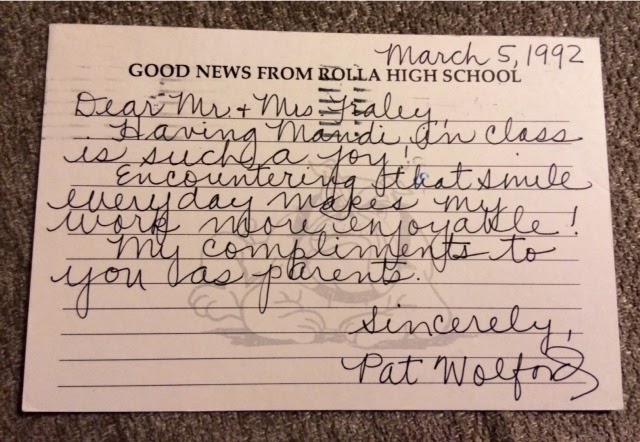 March 5, 1992
GOOD NEWS FROM ROLLA HIGH SCHOOL
Dear Mr. + Mrs. Fraley,
Having Mandi in class
is such a joy!
Encountering that smile
everyday makes my
work more enjoyable!
My compliments to
you as parents.
Sincerely,
Pat Wolford